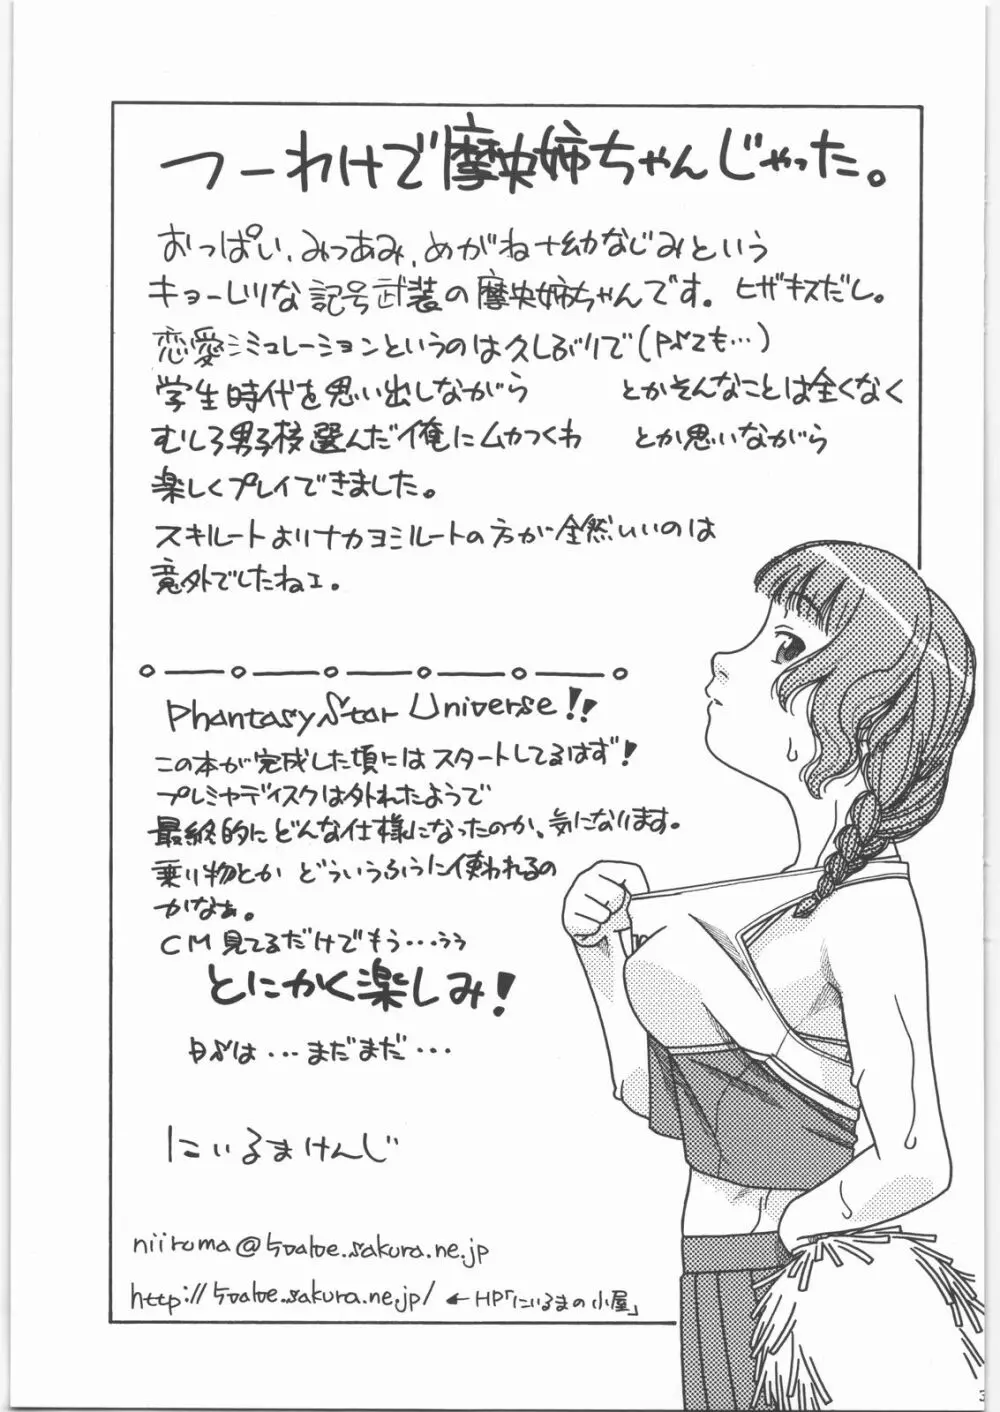 つーわけで摩央姉ちゃんじゃった。
おっぱい、みつあみ、めがね+幼なじみという
キョーレツな記号武装の摩央姉ちゃんです。ヒザキスだし。
恋愛シミュレーションというのは久しぶりで(PSでも…)
学生時代を思い出しながら とかそんなことは全くなく
むしろ男子校選んだ俺にムカつくわ とか思いながら
楽しくプレイできました。
スキルートよりナカヨシルートの方が全然いいのは
意外でしたねェ。
Phantasy Star Universe!!
この本が完成した頃にはスタートしてるはず!
プレミヤディスクは外れたようで
最終的にどんな仕様になったのか、気になります。
乗り物とか どういうふうに使われるの
かなぁ。
CM見てるだけでもう…うぅ
とにかく楽しみ!
は…まだまだ…
にいるまけんじ
←HP「にいるまの小屋」